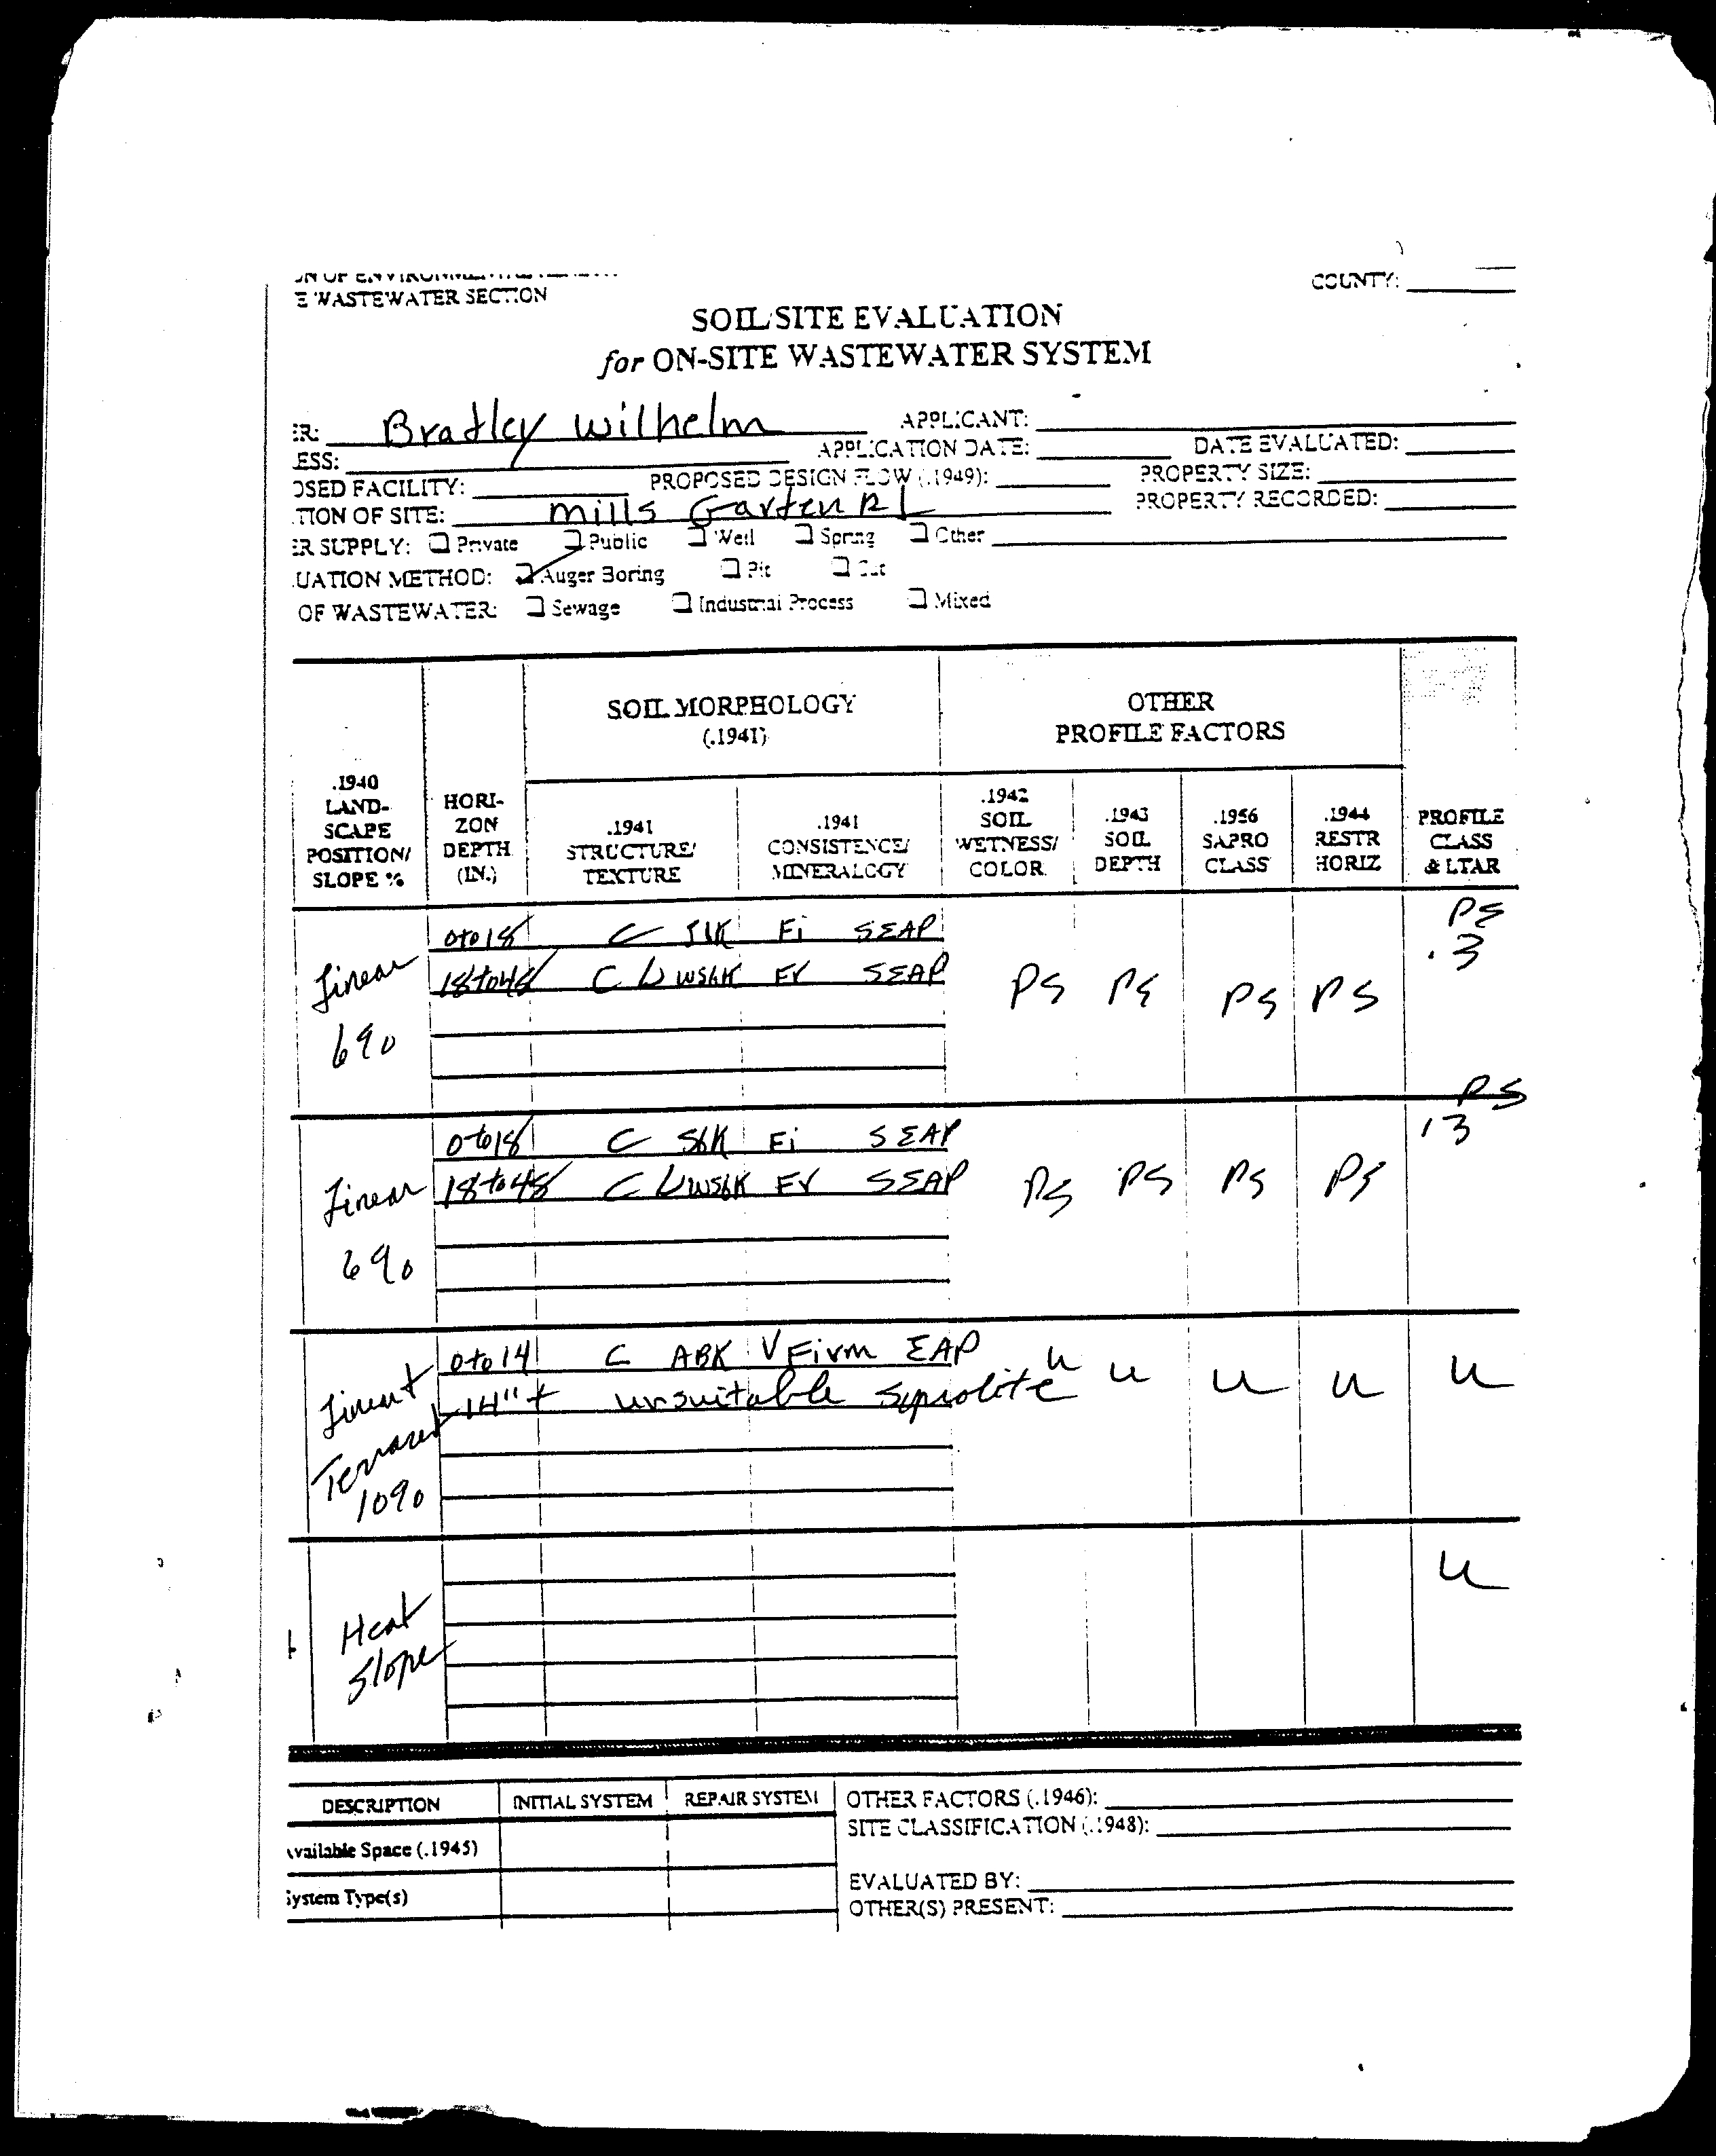 E WASTEWATER SECTION
COUNTY:
SOIL/SITE EVALUATION
for ON-SITE WASTEWATER SYSTEM
ER: Bradley Wilhelm APPLICANT:
ESS: APPLICATION DATE: DATE EVALUATED:
OSED FACILITY: PROPOSED DESIGN FLOW (.1949): PROPERTY SIZE:
TION OF SITE: Mills Garden Rd PROPERTY RECORDED:
ER SUPPLY: Private Public Well Spring Other
UATION METHOD: Auger Boring Pit Cut
OF WASTEWATER: Sewage Industrial Process Mixed
SOIL MORPHOLOGY
(.1941)
OTHER
PROFILE FACTORS
.1940
LAND-
SCAPE
POSITION/
SLOPE %
HORI-
ZON
DEPTH
(IN.)
.1941
STRUCTURE/
TEXTURE
.1941
CONSISTENCE/
MINERALOGY
.1942
SOIL
WETNESS/
COLOR
.1943
SOIL
DEPTH
.1956
SAPRO
CLASS
.1944
RESTR
HORIZ
PROFILE
CLASS
& LTAR
Linear
6%
0 to 18 C SBK Fi SEAP
18 to 48 C L WSBK Fr SEAP
PS PS PS PS
PS
.3
Linear
6%
0 to 18 C SBK Fi SEAP
18 to 48 C L WSBK Fr SEAP
PS PS PS PS
PS
.3
Linear +
Terraced
10%
0 to 14 C ABK V Firm EAP
14"+ unsuitable Saprolite
U U U U U
Head
Slope
U
DESCRIPTION INITIAL SYSTEM REPAIR SYSTEM
vailable Space (.1945)
System Type(s)
OTHER FACTORS (.1946):
SITE CLASSIFICATION (.1948):
EVALUATED BY:
OTHER(S) PRESENT: